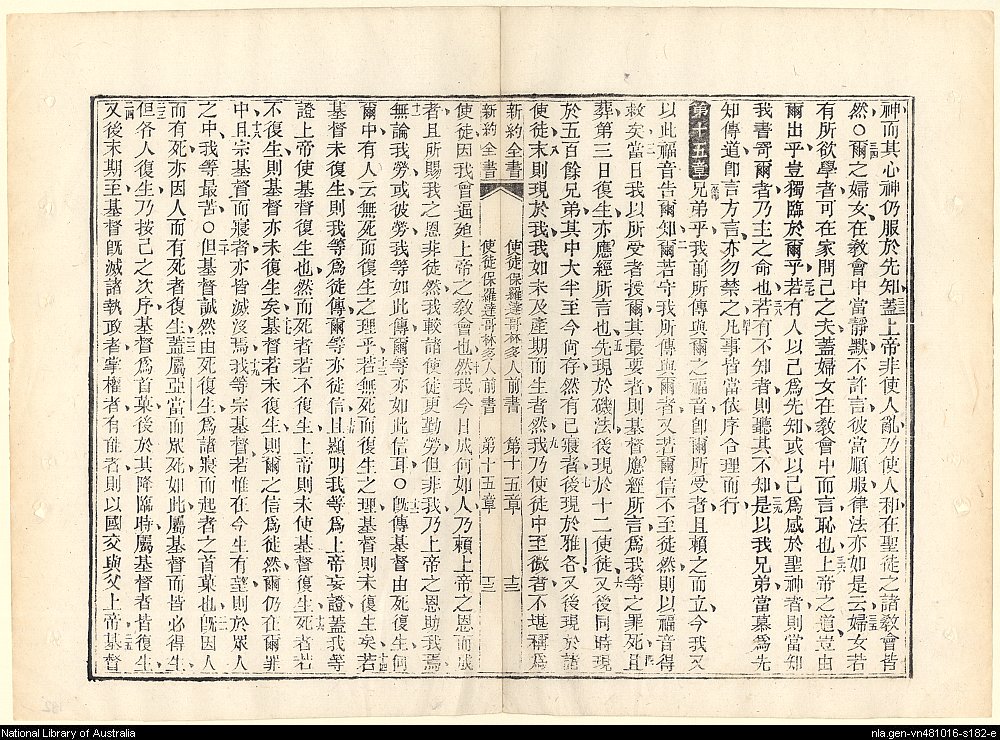 神而其心神仍服於先知蓋上帝非使人亂乃使人和在聖徒之諸教會皆
然○爾之婦女在教會中當靜默不許言彼當順服律法亦如是云婦女若
有所欲學者可在家問己之夫蓋婦女在教會中而言恥也上帝之道豈由
爾出乎豈獨臨於爾乎若有人以己為先知或以己為感於聖神者則當知
我書寄爾者乃主之命也若有不知者則聽其不知是以我兄弟當慕為先
知傳道卽言方言亦勿禁之凡事皆當依序合理而行
第十五章兄弟乎我前所傳與爾之福音卽爾所受者且賴之而立今我又
以此福音告爾知爾若守我所傳與爾者又若爾信不至徒然則以福音得
救矣當日我以所受者授爾其最要者則基督應經所言為我等之罪死且
葬第三日復生亦應經所言也先現於磯法後現於十二使徒又後同時現
於五百餘兄弟其中大半至今尚存然有已寢者後現於雅各又後現於諸
使徒末則現於我我如未及產期而生者然我乃使徒中至微者不堪稱為
新約全書 使徒保羅達哥林多人前書 第十五章 十三
新約全書 使徒保羅達哥林多人前書 第十五章 十三
使徒因我曾逼迫上帝之教會也然我今日成何如人乃賴上帝之恩而成
者且所賜我之恩非徒然我較諸使徒更勤勞但非我乃上帝之恩助我焉
無論我勞或彼勞我等如此傳爾等亦如此信耳○旣傳基督由死復生何
爾中有人云無死而復生之理乎若無死而復生之理基督則未復生矣若
基督未復生則我等為徒傳爾等亦徒信且顯明我等為上帝妄證蓋我等
證上帝使基督復生也然而死者若不復生上帝則未使基督復生死者若
不復生則基督亦未復生矣基督若未復生則爾之信為徒然爾仍在爾罪
中且宗基督而寢者亦皆滅沒焉我等宗基督若惟在今生有望則於眾人
之中我等最苦○但基督誠然由死復生為諸寢而起者之首菓也旣因人
而有死亦因人而有死者復生蓋屬亞當而眾死如此屬基督而皆必得生
但各人復生乃按己之次序基督為首菓後於其降臨時屬基督者皆復生
又後末期至基督旣滅諸執政者掌權者有能者則以國交與父上帝基督
National Library of Australia
nla.gen-vn481016-s182-e